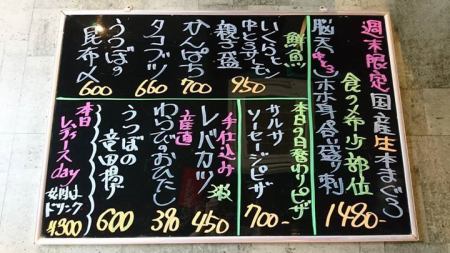 週末限定国産生本まぐろ
食のメ希少部位
脳天(中とろ)ホホ身合い盛り刺
1480-
鮮魚
いくらと
中とろサーモン
親子盛
950
ひんぱち
700
タコブツ
660
うつぼの
昆布〆
600
本日の日替わりピザ
サルサ
ソーセージピザ
700-
手仕込み
レバカツ
450
産直
わらびのおひたし
390
うつぼの
竜田揚
600
本日
レディースday
女性は
ドリンク
¥300